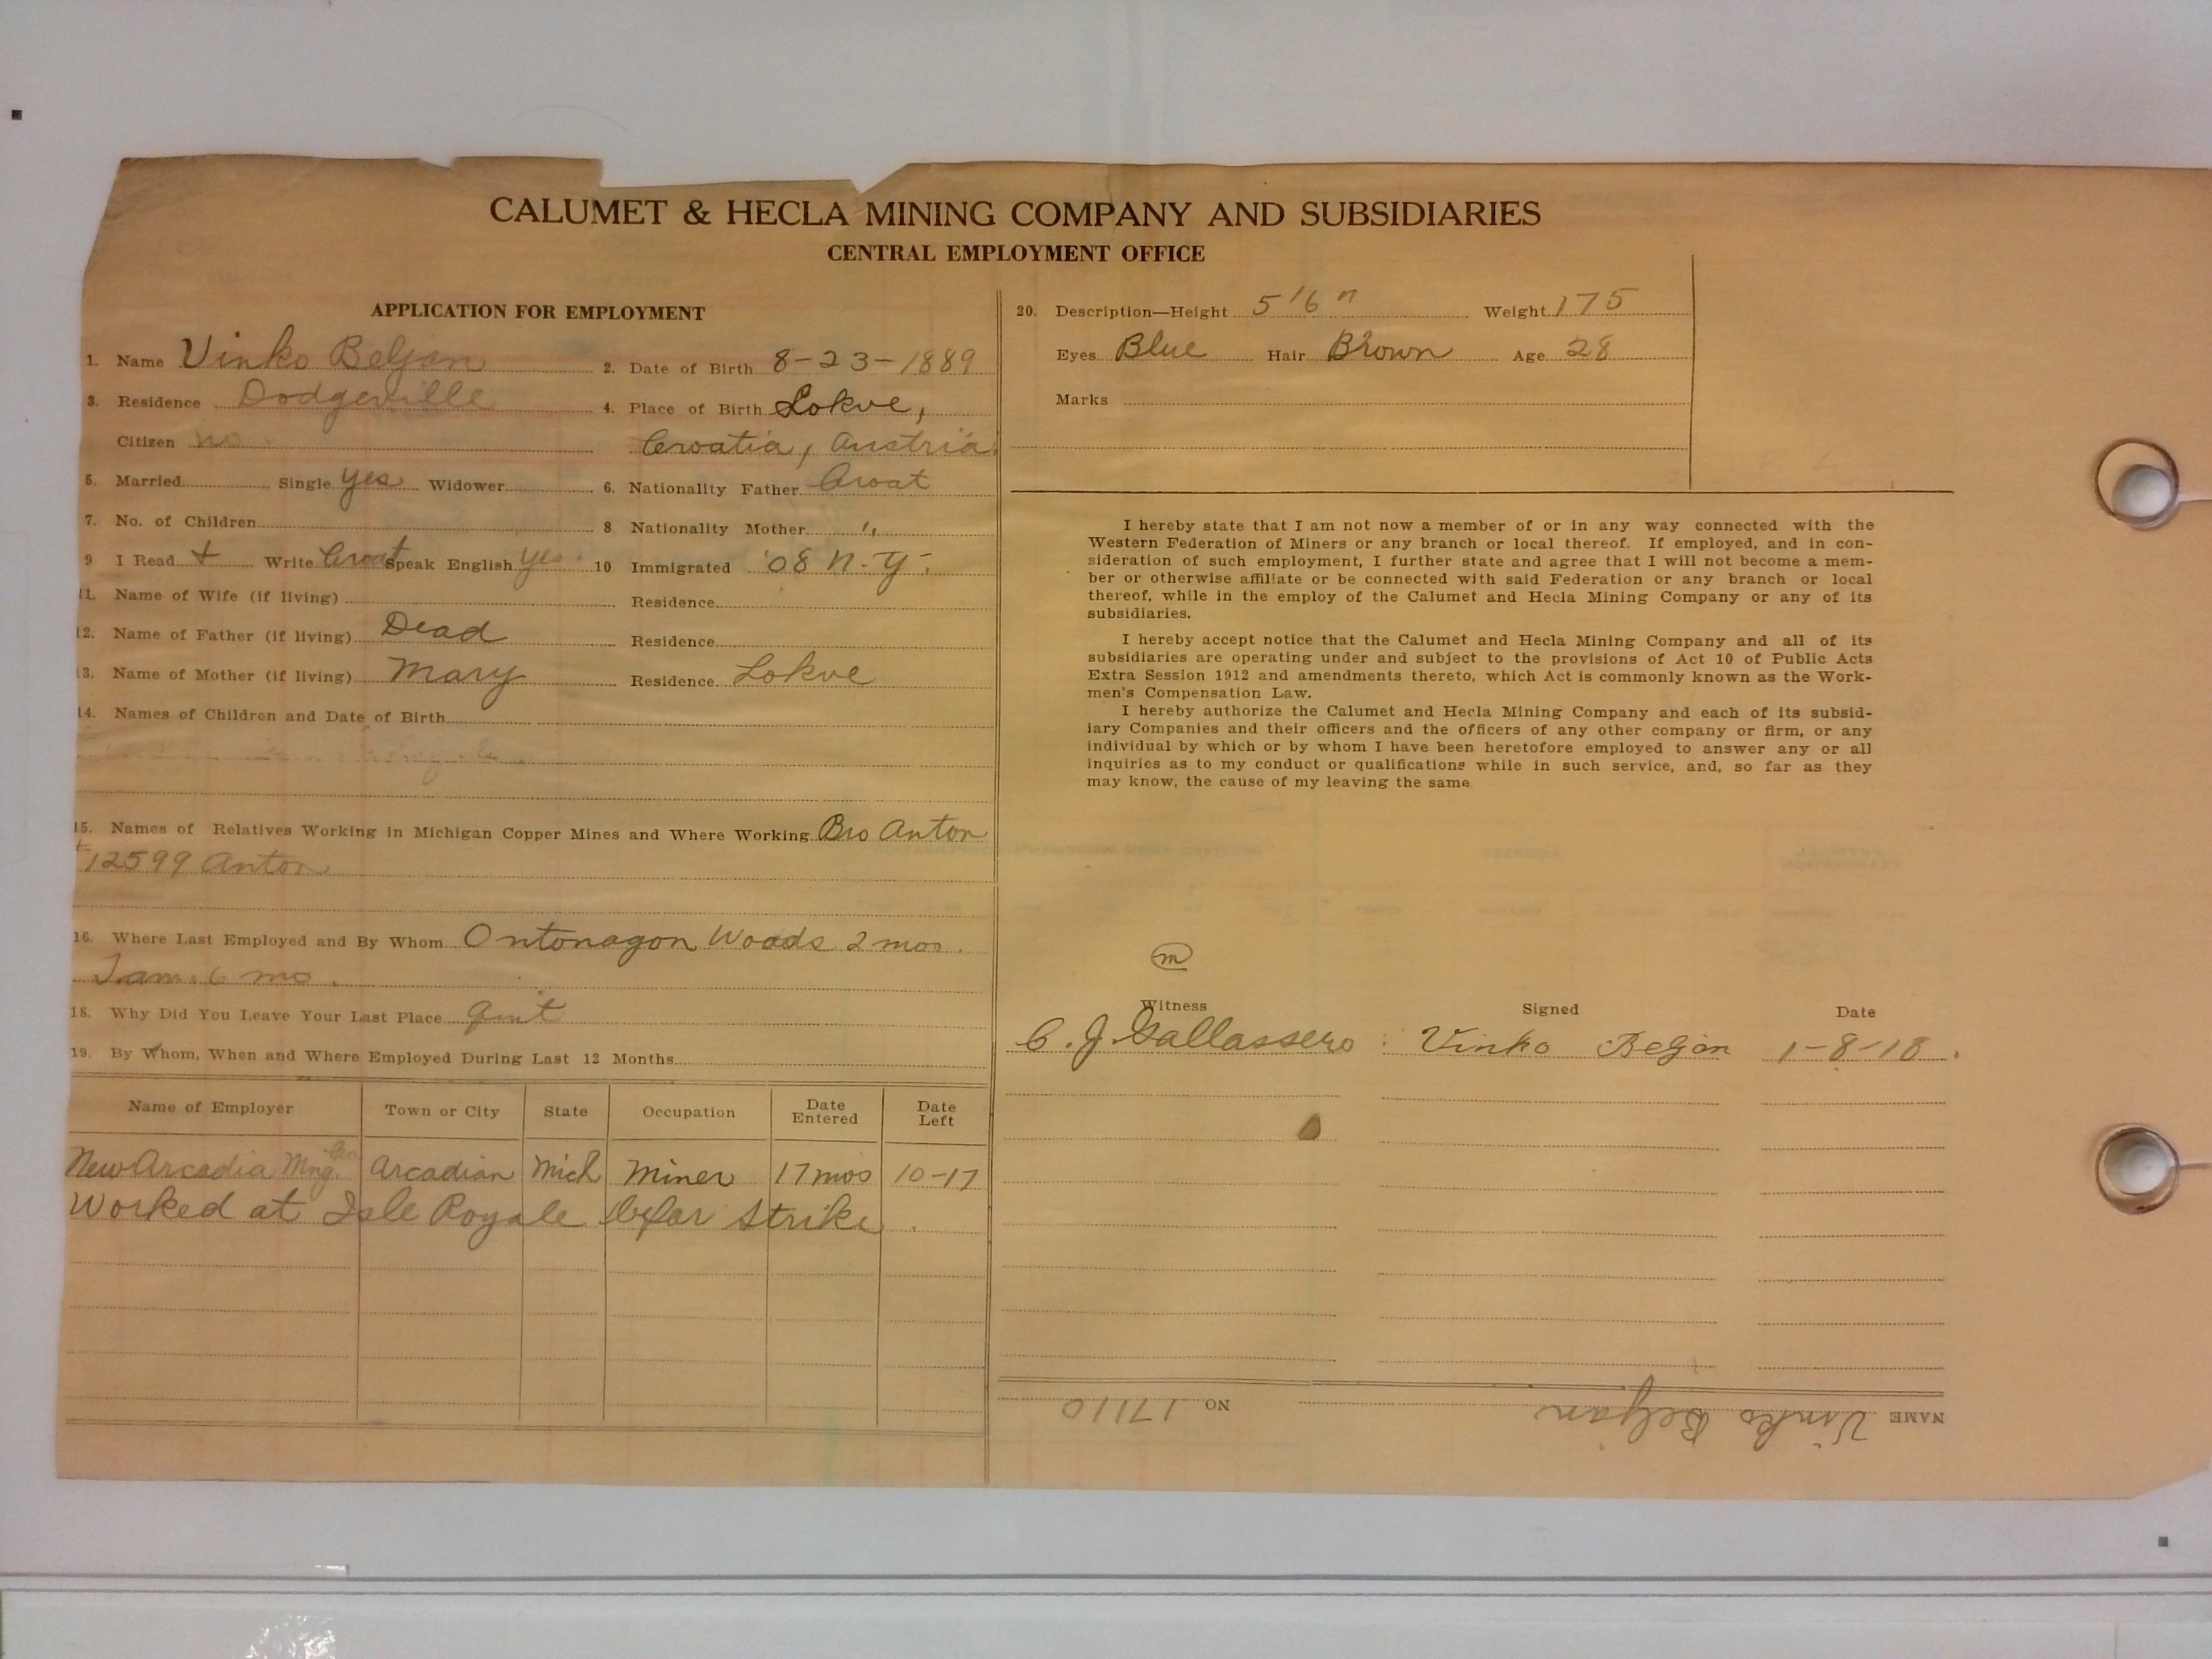 CALUMET & HECLA MINING COMPANY AND SUBSIDIARIES
CENTRAL EMPLOYMENT OFFICE
APPLICATION FOR EMPLOYMENT
1. Name Vinko Beljan 2. Date of Birth 8-23-1889
3. Residence Dodgeville 4. Place of Birth Lokve,
Citizen no Croatia, Austria
5. Married Single yes Widower 6. Nationality Father Croat
7. No. of Children 8 Nationality Mother "
9 I Read + Write Croat Speak English yes 10 Immigrated '08 N.Y.
11. Name of Wife (if living) Residence
12. Name of Father (if living) Dead Residence
13. Name of Mother (if living) Mary Residence Lokve
14. Names of Children and Date of Birth
15. Names of Relatives Working in Michigan Copper Mines and Where Working Bro Anton
12599 Anton
16. Where Last Employed and By Whom Ontonagon Woods 2 mos.
6 mo.
18. Why Did You Leave Your Last Place quit
19. By Whom, When and Where Employed During Last 12 Months
Name of Employer Town or City State Occupation Date Entered Date Left
New Arcadia Mng. Co Arcadian Mich Miner 17 mos 10-17
Worked at Isle Royale befor Strike.
20. Description—Height 5'6" Weight 175
Eyes Blue Hair Brown Age 28
Marks
I hereby state that I am not now a member of or in any way connected with the
Western Federation of Miners or any branch or local thereof. If employed, and in con-
sideration of such employment, I further state and agree that I will not become a mem-
ber or otherwise affiliate or be connected with said Federation or any branch or local
thereof, while in the employ of the Calumet and Hecla Mining Company or any of its
subsidiaries.
I hereby accept notice that the Calumet and Hecla Mining Company and all of its
subsidiaries are operating under and subject to the provisions of Act 10 of Public Acts
Extra Session 1912 and amendments thereto, which Act is commonly known as the Work-
men's Compensation Law.
I hereby authorize the Calumet and Hecla Mining Company and each of its subsid-
iary Companies and their officers and the officers of any other company or firm, or any
individual by which or by whom I have been heretofore employed to answer any or all
inquiries as to my conduct or qualifications while in such service, and, so far as they
may know, the cause of my leaving the same
m
Witness Signed Date
C. J. Gallassero Vinko Beljan 1-8-18.
NAME Vinko Beljan NO 17110